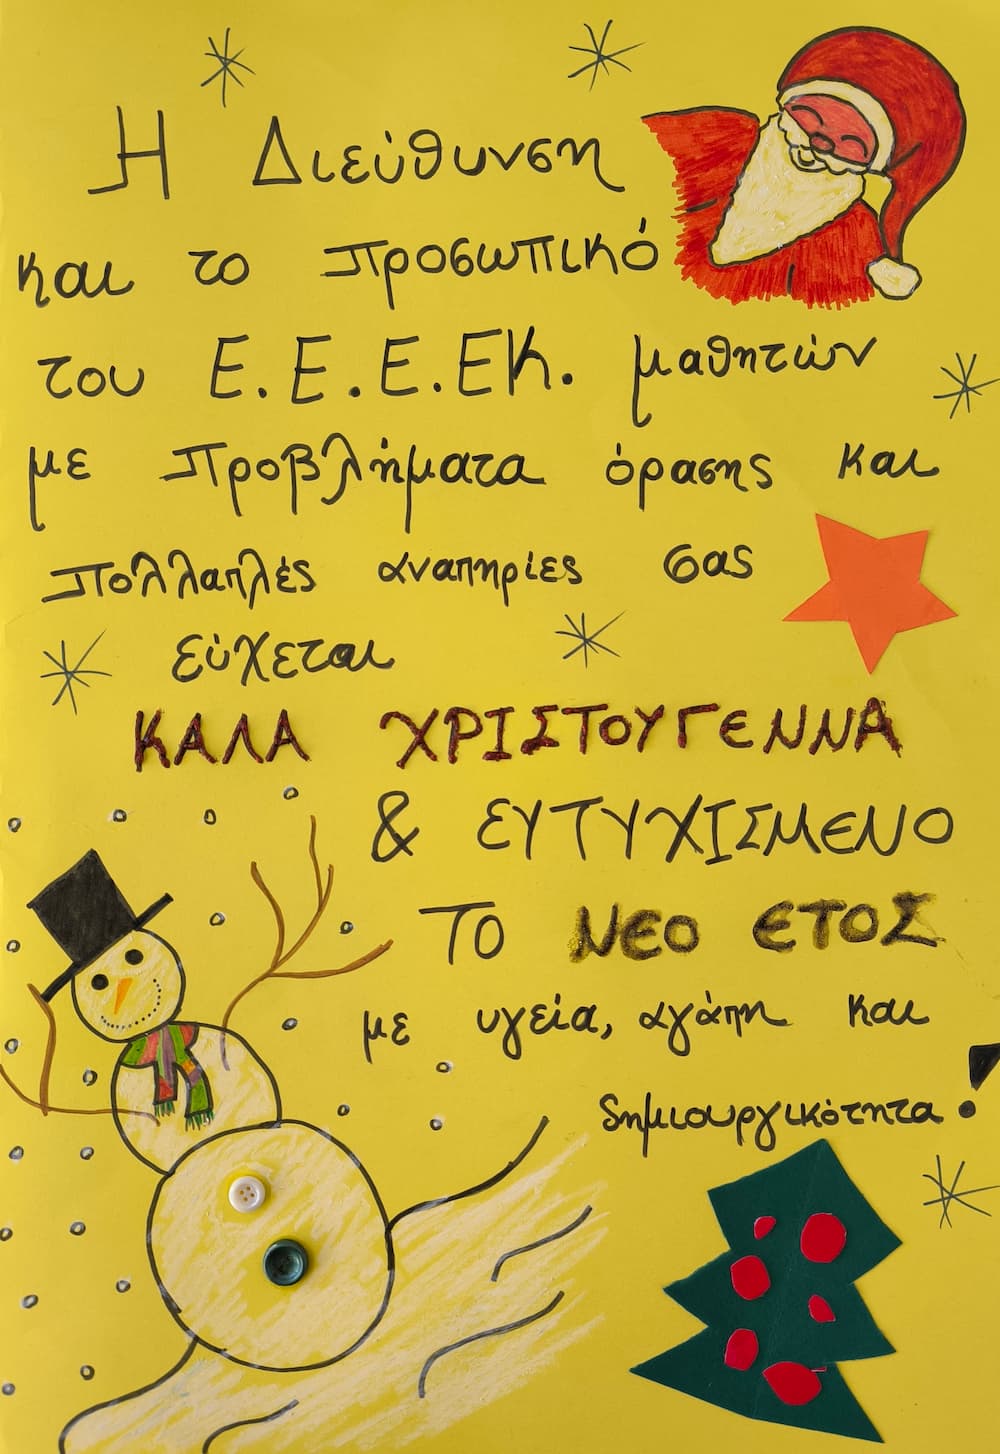 Η Διεύθυνση
και το προσωπικό
του Ε.Ε.Ε.ΕΚ. μαθητών
με προβλήματα όρασης και
πολλαπλές αναπηρίες σας
εύχεται
ΚΑΛΑ ΧΡΙΣΤΟΥΓΕΝΝΑ
& ΕΥΤΥΧΙΣΜΕΝΟ
ΤΟ ΝΕΟ ΕΤΟΣ
με υγεία, αγάπη και
δημιουργικότητα!